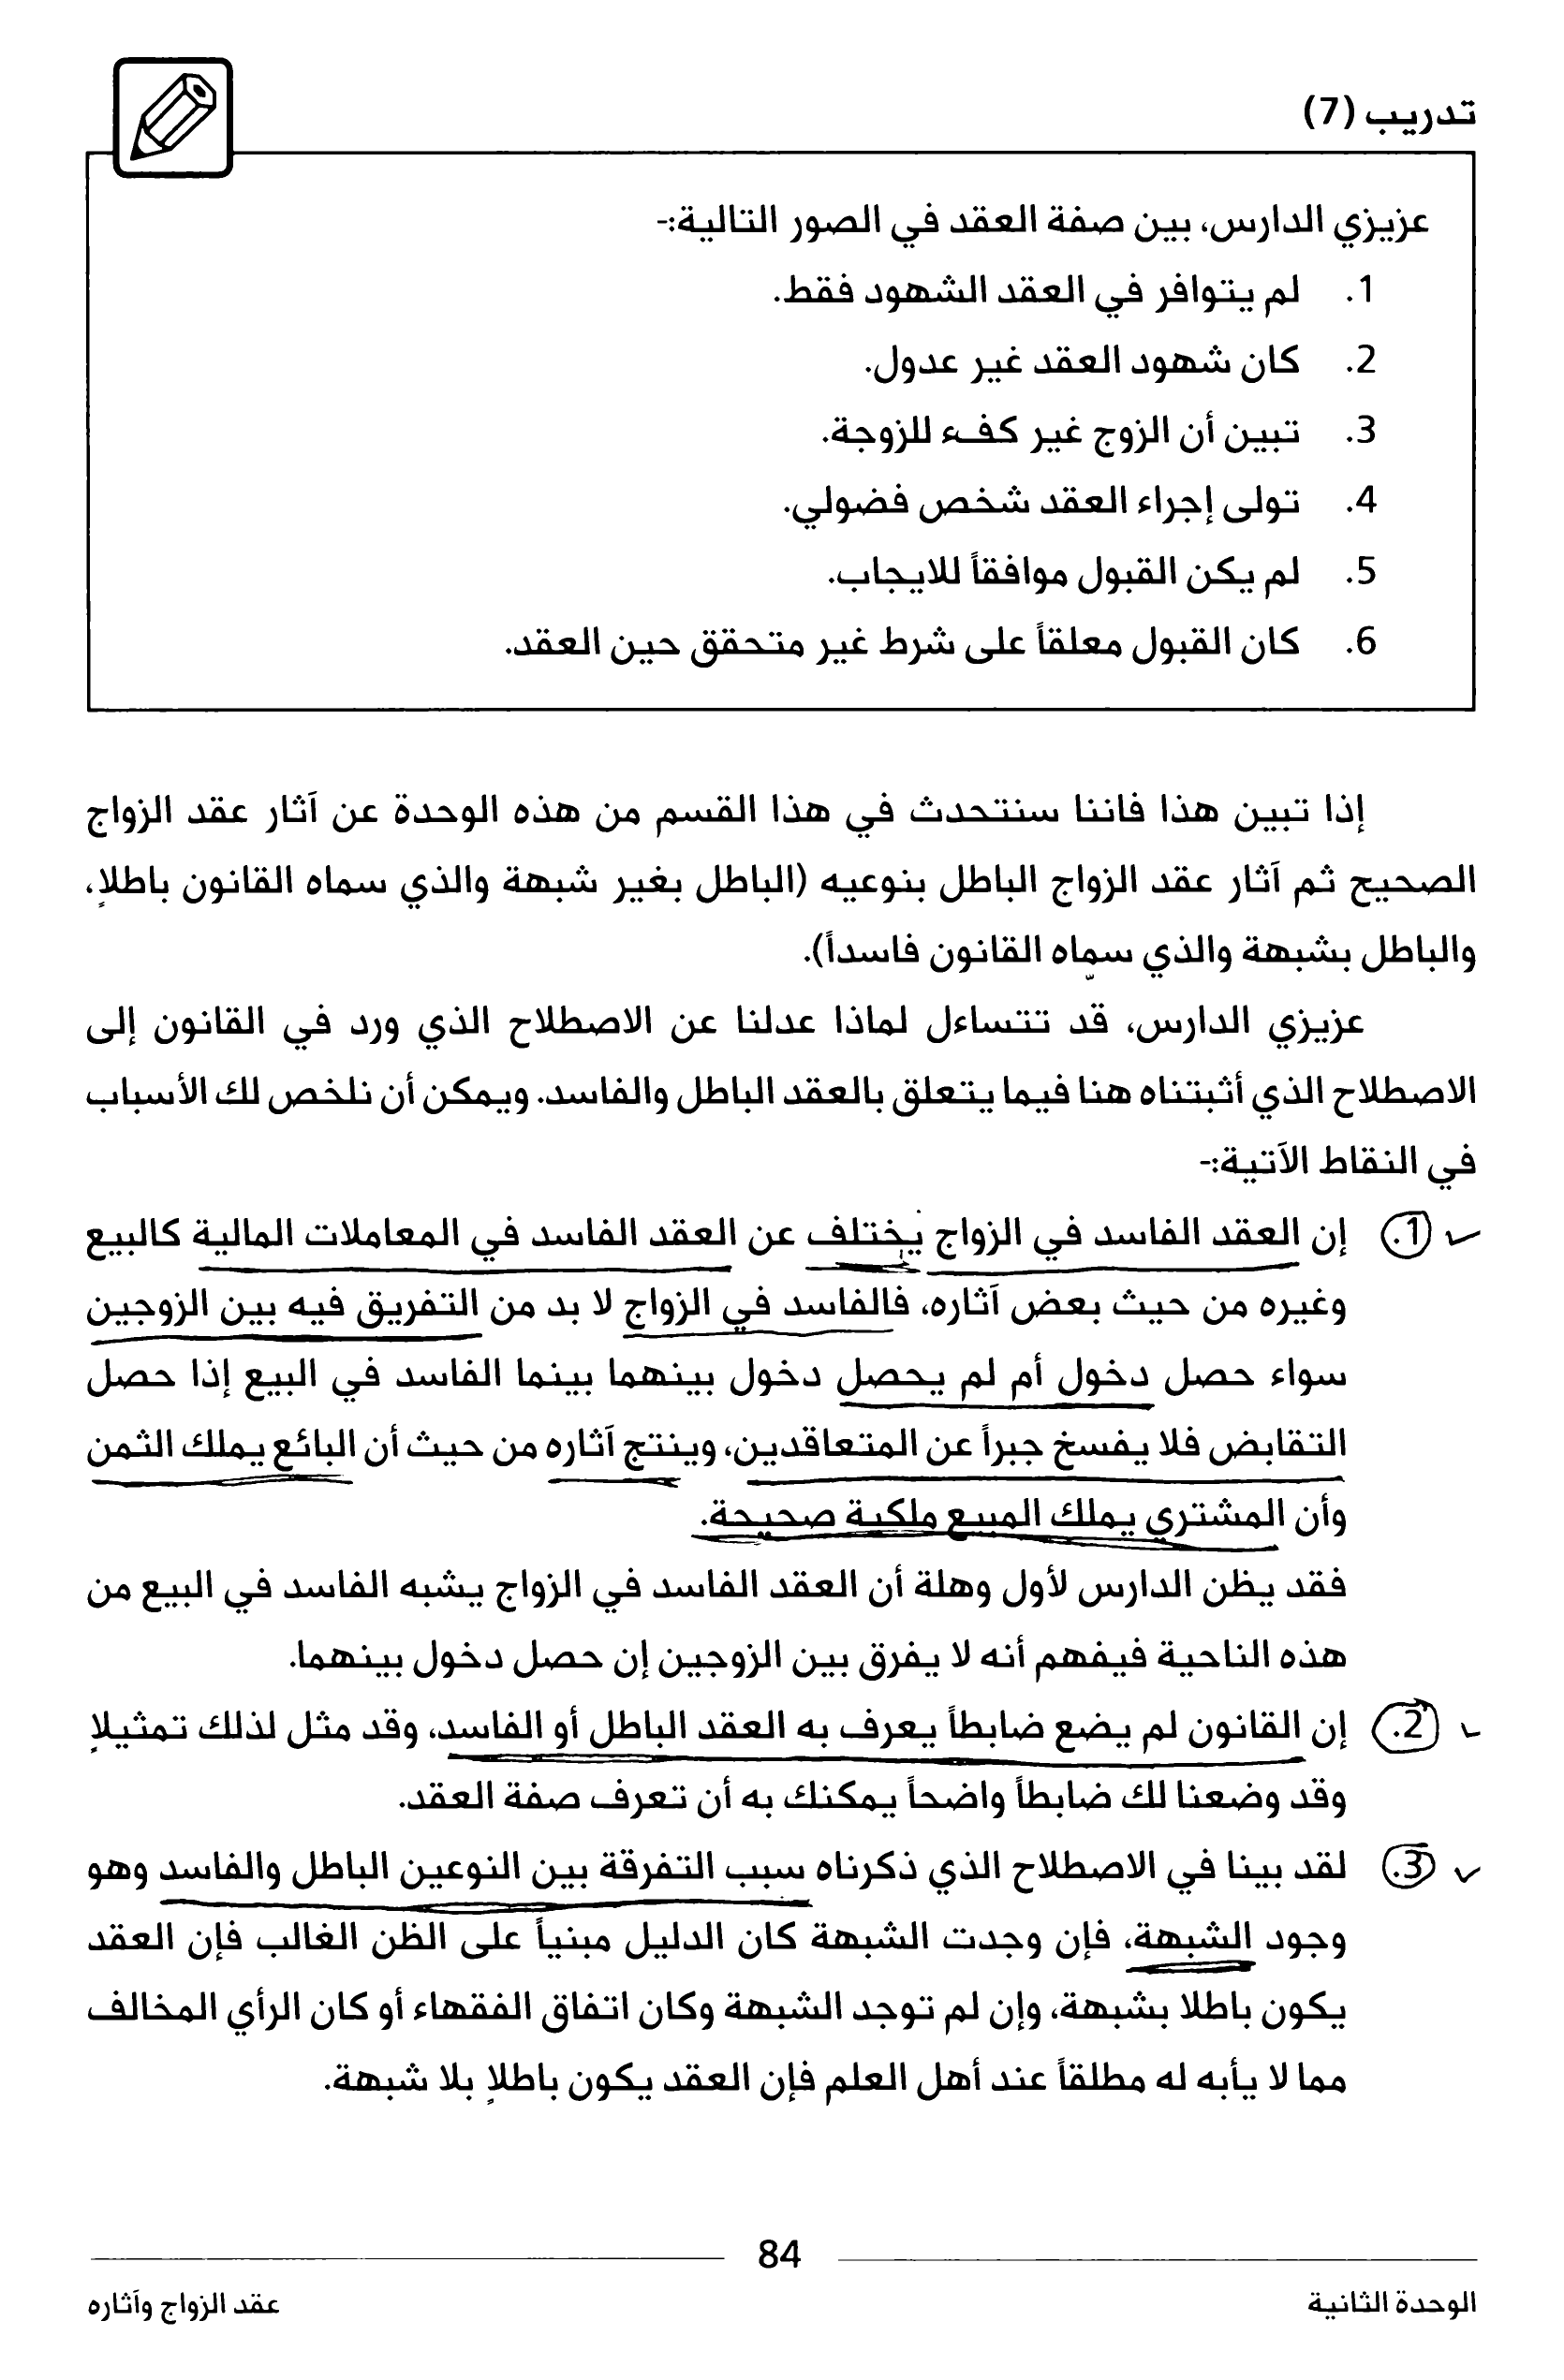 تدريب (7)
عزيزي الدارس، بين صفة العقد في الصور التالية:-
1. لم يتوافر في العقد الشهود فقط.
2. كان شهود العقد غير عدول.
3. تبين أن الزوج غير كفء للزوجة.
4. تولى إجراء العقد شخص فضولي.
5. لم يكن القبول موافقاً للايجاب.
6. كان القبول معلقاً على شرط غير متحقق حين العقد.
إذا تبين هذا فاننا سنتحدث في هذا القسم من هذه الوحدة عن آثار عقد الزواج
الصحيح ثم آثار عقد الزواج الباطل بنوعيه (الباطل بغير شبهة والذي سماه القانون باطلاٍ،
والباطل بشبهة والذي سمّاه القانون فاسداً).
عزيزي الدارس، قد تتساءل لماذا عدلنا عن الاصطلاح الذي ورد في القانون إلى
الاصطلاح الذي أثبتناه هنا فيما يتعلق بالعقد الباطل والفاسد. ويمكن أن نلخص لك الأسباب
في النقاط الآتية:-
1. إن العقد الفاسد في الزواج يختلف عن العقد الفاسد في المعاملات المالية كالبيع
وغيره من حيث بعض آثاره، فالفاسد في الزواج لا بد من التفريق فيه بين الزوجين
سواء حصل دخول أم لم يحصل دخول بينهما بينما الفاسد في البيع إذا حصل
التقابض فلا يفسخ جبراً عن المتعاقدين، وينتج آثاره من حيث أن البائع يملك الثمن
وأن المشتري يملك المبيع ملكية صحيحة.
فقد يظن الدارس لأول وهلة أن العقد الفاسد في الزواج يشبه الفاسد في البيع من
هذه الناحية فيفهم أنه لا يفرق بين الزوجين إن حصل دخول بينهما.
2. إن القانون لم يضع ضابطاً يعرف به العقد الباطل أو الفاسد، وقد مثل لذلك تمثيلاٍ
وقد وضعنا لك ضابطاً واضحاً يمكنك به أن تعرف صفة العقد.
3. لقد بينا في الاصطلاح الذي ذكرناه سبب التفرقة بين النوعين الباطل والفاسد وهو
وجود الشبهة، فإن وجدت الشبهة كان الدليل مبنياً على الظن الغالب فإن العقد
يكون باطلا بشبهة، وإن لم توجد الشبهة وكان اتفاق الفقهاء أو كان الرأي المخالف
مما لا يأبه له مطلقاً عند أهل العلم فإن العقد يكون باطلاٍ بلا شبهة.
84
الوحدة الثانية
عقد الزواج وآثاره